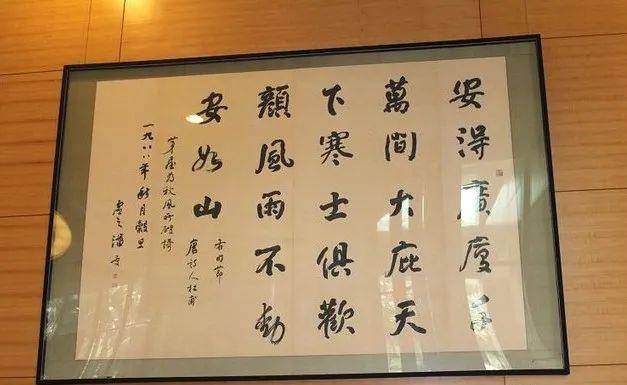 安得廣廈千
萬間大庇天
下寒士俱歡
顏風雨不動
安如山
唐詩人杜甫
茅屋為秋風所破
一九八八年秋月穀旦
虛之潘受